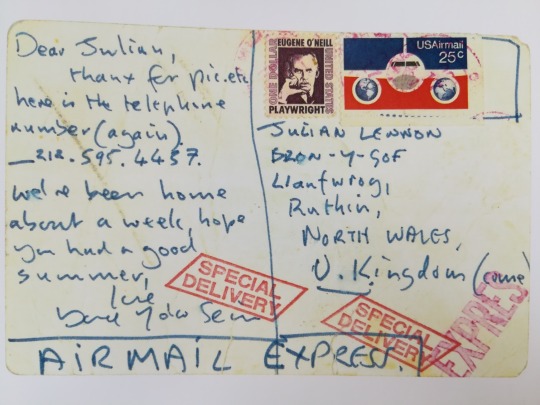 Dear Julian,
thanx for pic.etc
here is the telephone
number (again)
212.595.
we've been home
about a week, hope
you had a good
summer,
love
Yoko Sean
ONE DOLLAR
EUGENE O'NEILL
PLAYWRIGHT
UNITED STATES
USAirmail
25c
JULIAN LENNON
BRON-Y-GOF
Llanfwrog,
Ruthin,
NORTH WALES,
U.Kingdom
SPECIAL
DELIVERY
SPECIAL
DELIVERY
EXPRES
AIRMAIL EXPRESS.